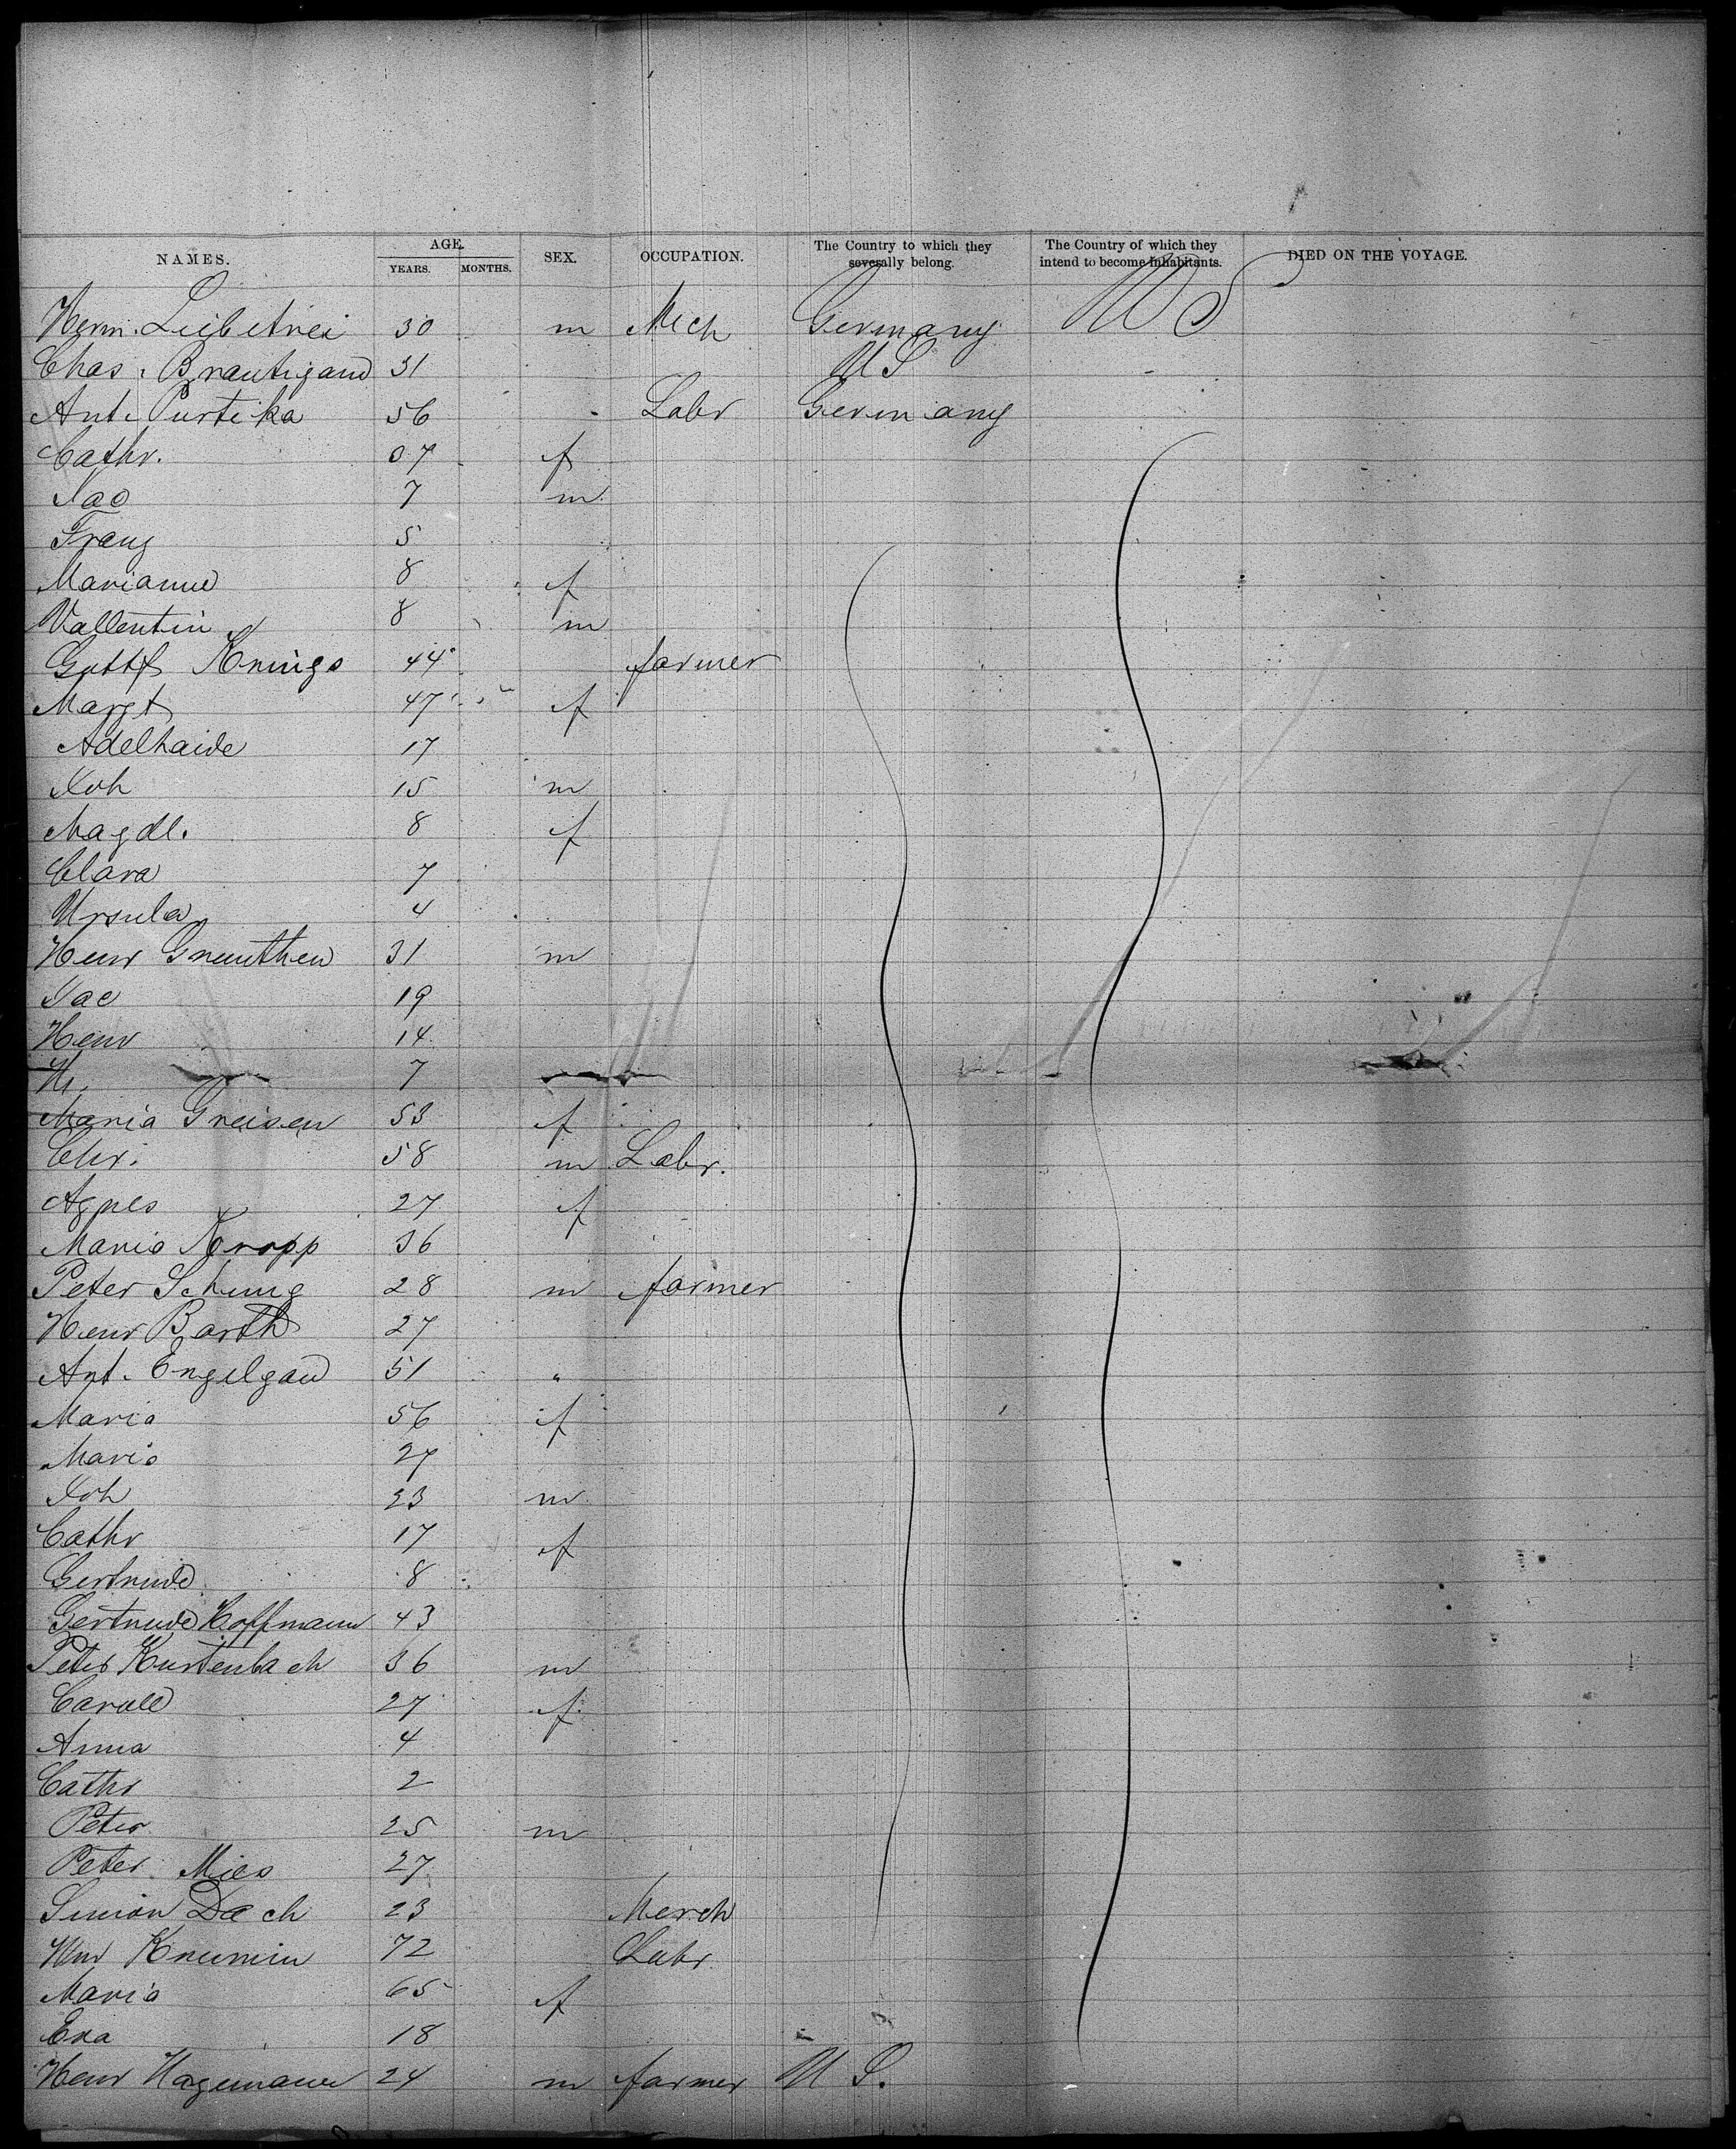 NAMES. AGE. YEARS. MONTHS. SEX. OCCUPATION. The Country to which they severally belong. The Country of which they intend to become inhabitants. DIED ON THE VOYAGE.
Herm. Liebetrei 30 m Mech Germany U S
Chas. Brautigam 31 U S
Ant. Purtika 56 Labr Germany
Cathr. 37 f
Jac 7 m
Franz 5
Marianne 8 f
Vallentin 8 m
Gottf Krings 44 farmer
Margt 47 f
Adelhaide 17
Joh 15 m
Magdl. 8 f
Clara 7
Ursula 4
Henr Gneuthen 31 m
Jac 19
Henr 14
W. 7
Maria Greisen 53 f
Chr. 58 m Labr.
Agnes 27 f
Maria Kropp 36
Peter Schung 28 m farmer
Henr Barth 27
Ant. Engelgau 51 "
Maria 56 f
Maria 27
Joh 23 m
Cathr 17 f
Gertrude 8
Gertrude Hoffmann 43
Peter Kurtenbach 36 m
Carole 27 f
Anna 4
Cathr 2
Peter 25 m
Peter Mies 27
Simon Dach 23 Merch
Wm 72 Labr
Maria 65 f
Eva 18
Henr Hagemann 24 m farmer U S.